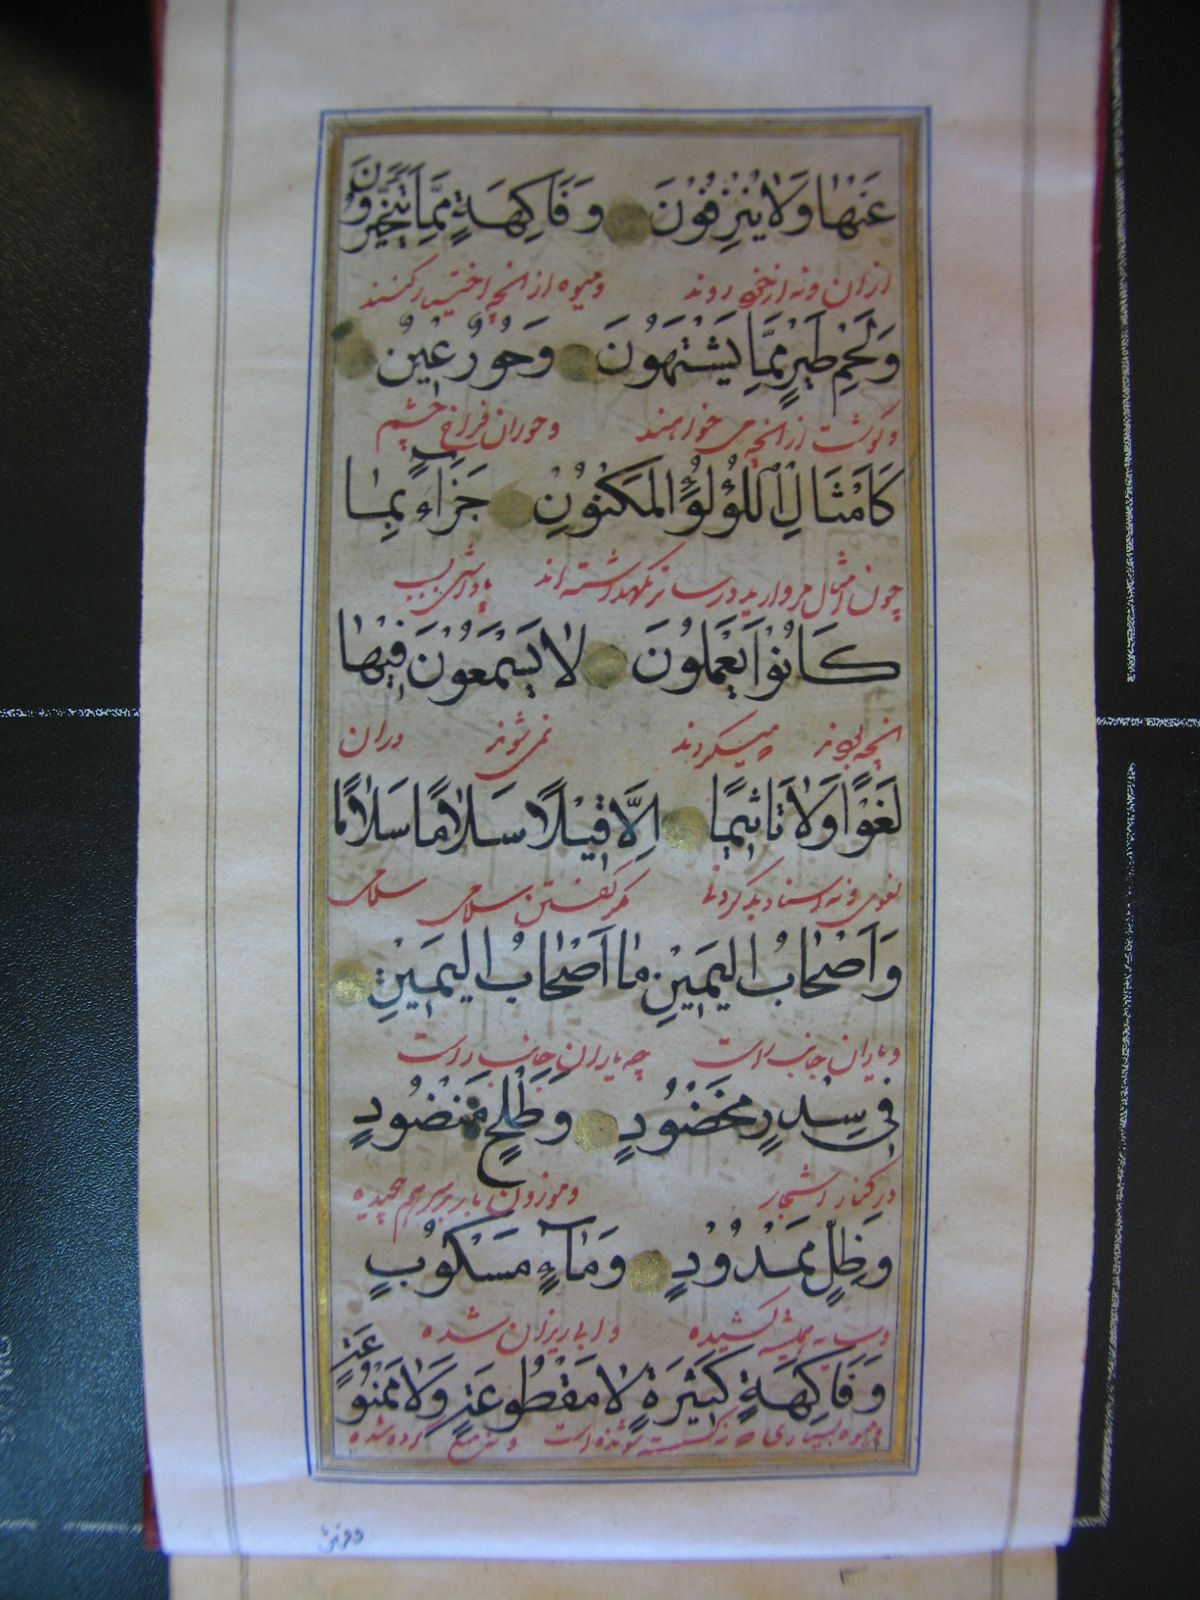 عَنْهَا وَلَا يُنْزِفُونَ وَفَاكِهَةٍ مِمَّا يَتَخَيَّرُونَ
ازان ونه ازخود روند ومیوه از انچه اختیار کنند
وَلَحْمِ طَيْرٍ مِمَّا يَشْتَهُونَ وَحُورٌ عِينٌ
وگوشت از انچه می خواهند وحوران فراخ چشم
كَاَمْثَالِ اللُّؤْلُؤِ الْمَكْنُونِ جَزَاءً بِمَا
چون امثال مروارید در نگهداشته اند پاداش بسبب
كَانُوا يَعْمَلُونَ لَا يَسْمَعُونَ فِيهَا
انچه بودند میکردند نمی شنوند دران
لَغْوًا وَلَا تَاْثِيمًا اِلَّا قِيلًا سَلَامًا سَلَامًا
لغوی ونه مگر گفتن سلامی سلامی
وَاَصْحَابُ الْيَمِينِ مَا اَصْحَابُ الْيَمِينِ
ویاران جانب راست چه یاران جانب راست
فِي سِدْرٍ مَخْضُودٍ وَطَلْحٍ مَنْضُودٍ
در کنار اشجار وموزون بار برسر هم پیچیده
وَظِلٍّ مَمْدُودٍ وَمَاءٍ مَسْكُوبٍ
وسایه همیشه کشیده وابی ریزان شده
وَفَاكِهَةٍ كَثِيرَةٍ لَا مَقْطُوعَةٍ وَلَا مَمْنُوعَةٍ
ومیوه بسیاری نه گسسته شونده است ونه منع کرده شده
وفرش